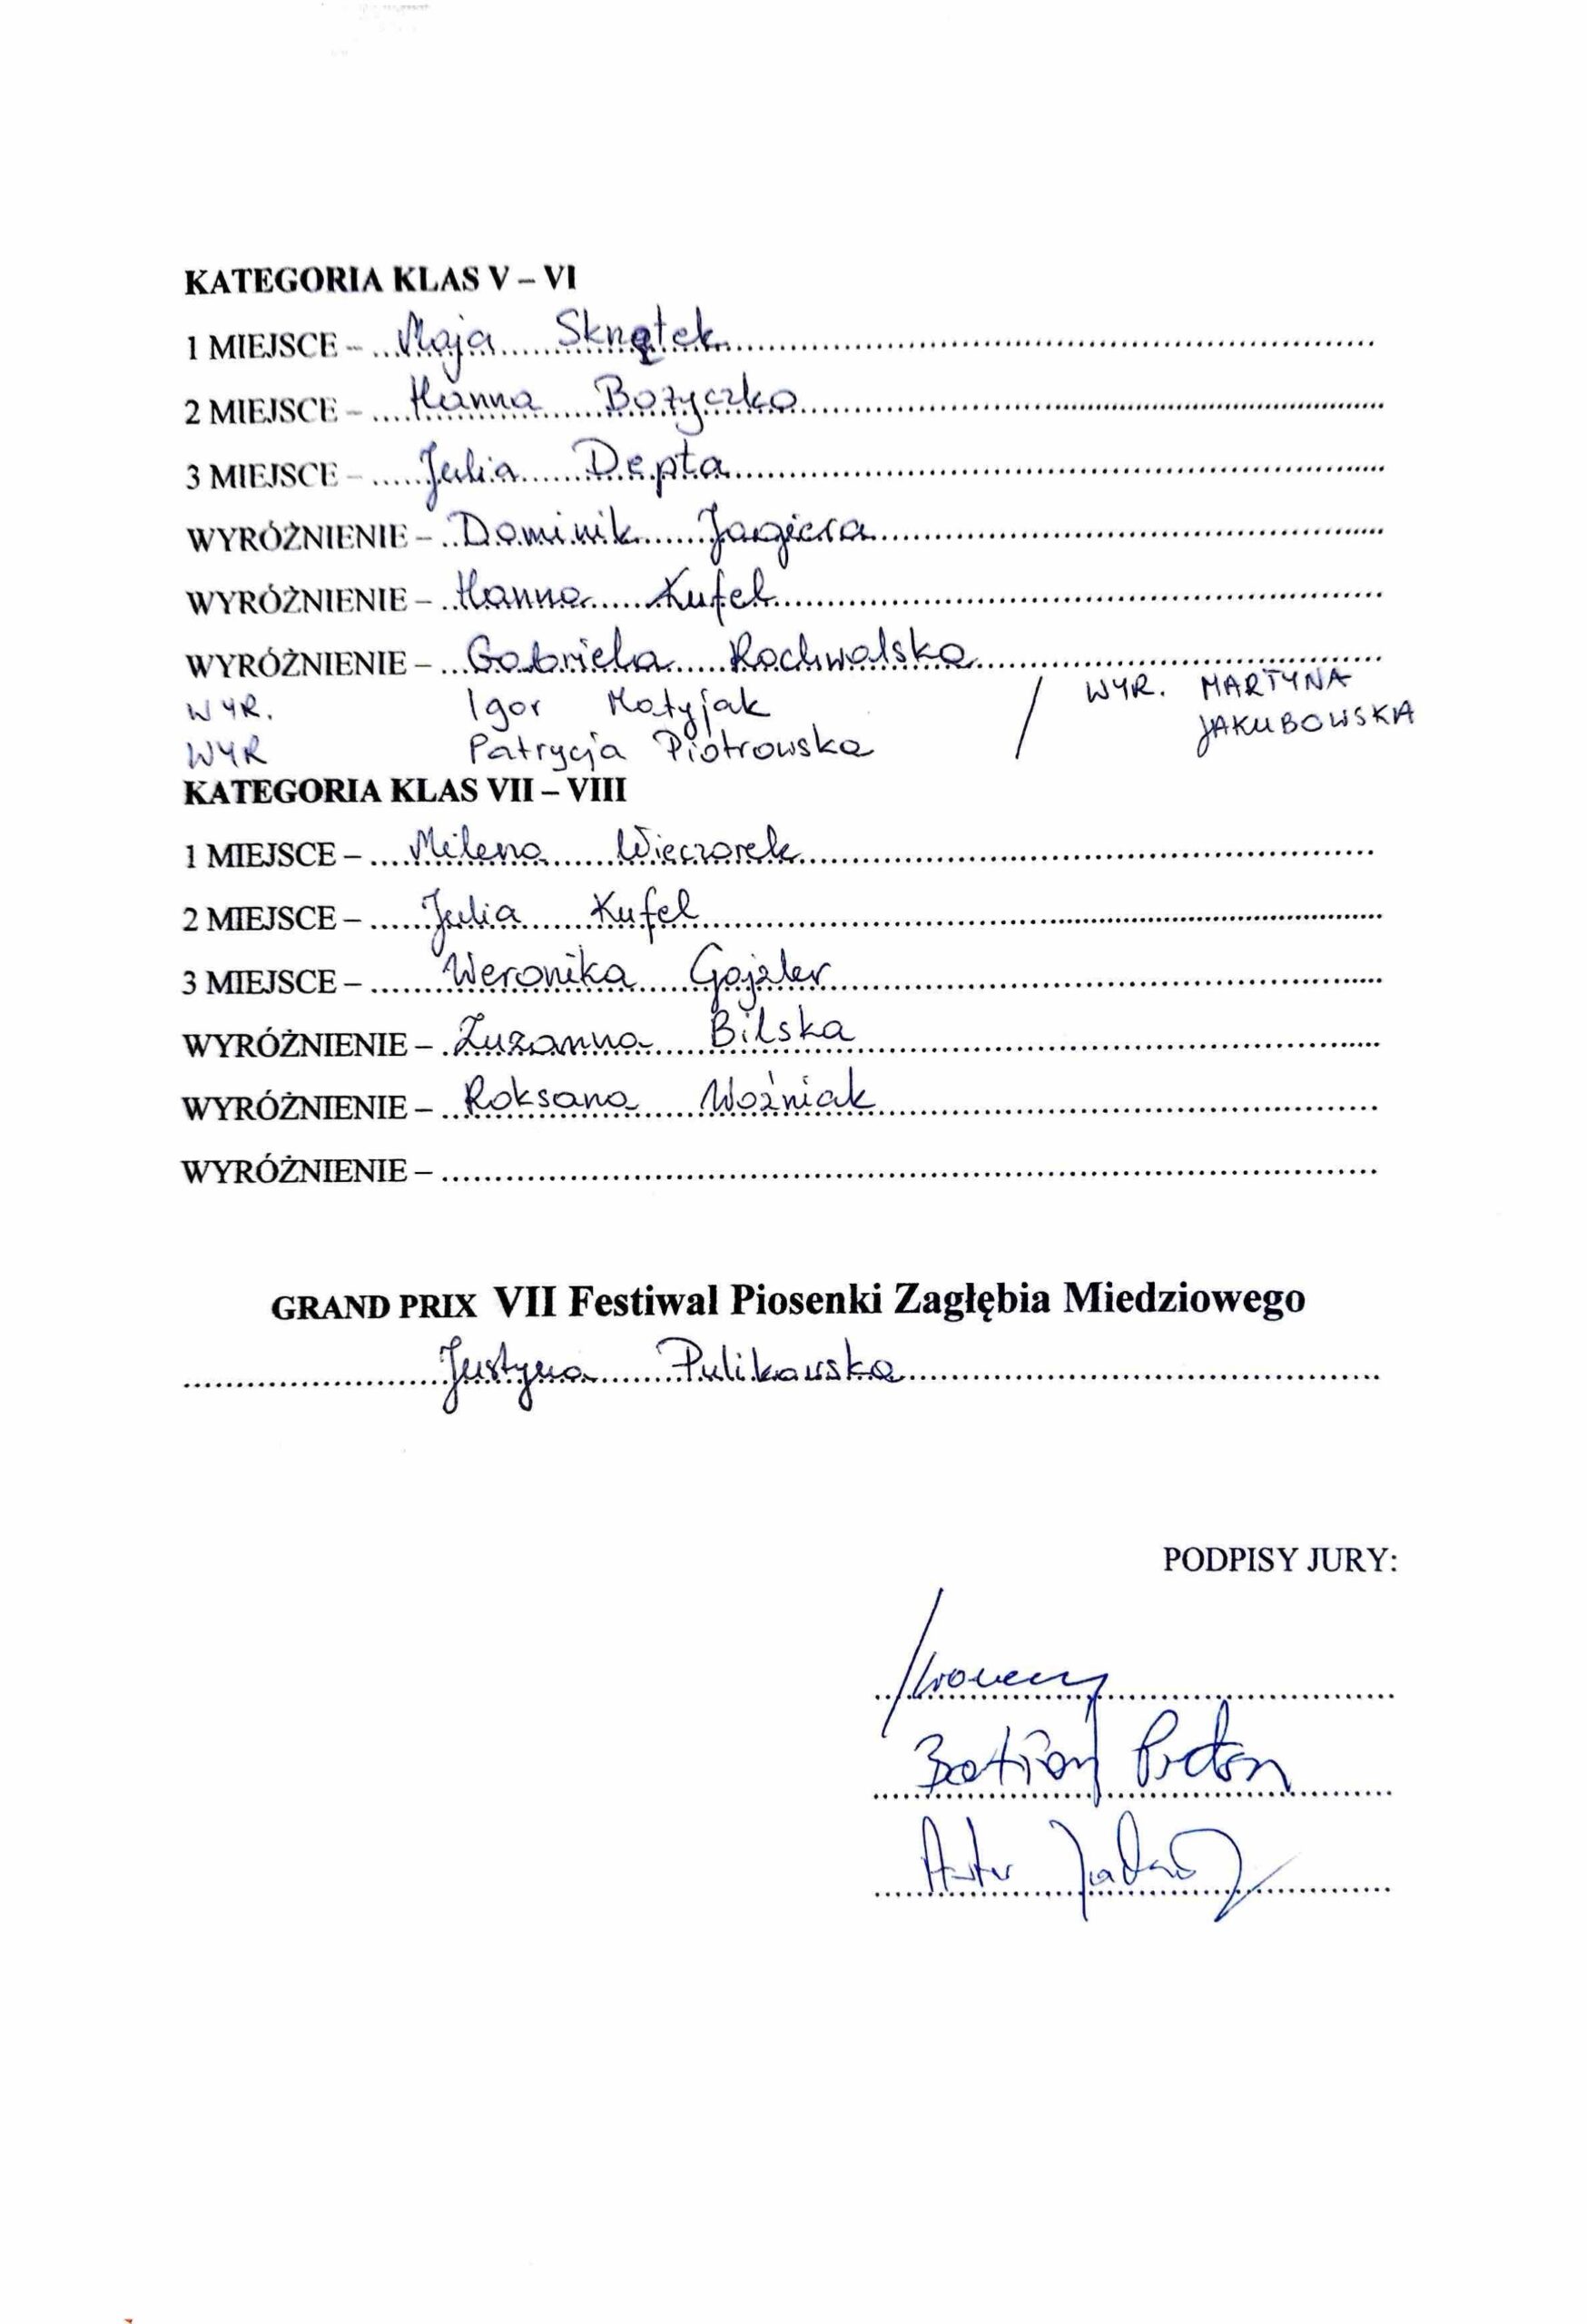 KATEGORIA KLAS V – VI
1 MIEJSCE – Maja Skrzątek
2 MIEJSCE – Hanna Bożyczko
3 MIEJSCE – Julia Depta
WYRÓŻNIENIE – Dominik Jagiera
WYRÓŻNIENIE – Hanna Kufel
WYRÓŻNIENIE – Gabriela Rochwalska
WYR. Igor Matyjak / WYR. MARTYNA
WYR Patrycja Piotrowska JAKUBOWSKA
KATEGORIA KLAS VII – VIII
1 MIEJSCE – Milena Wieczorek
2 MIEJSCE – Julia Kufel
3 MIEJSCE – Weronika Gajzler
WYRÓŻNIENIE – Zuzanna Bilska
WYRÓŻNIENIE – Roksana Woźniak
WYRÓŻNIENIE –
GRAND PRIX VII Festiwal Piosenki Zagłębia Miedziowego
Justyna Pulikowska
PODPISY JURY: